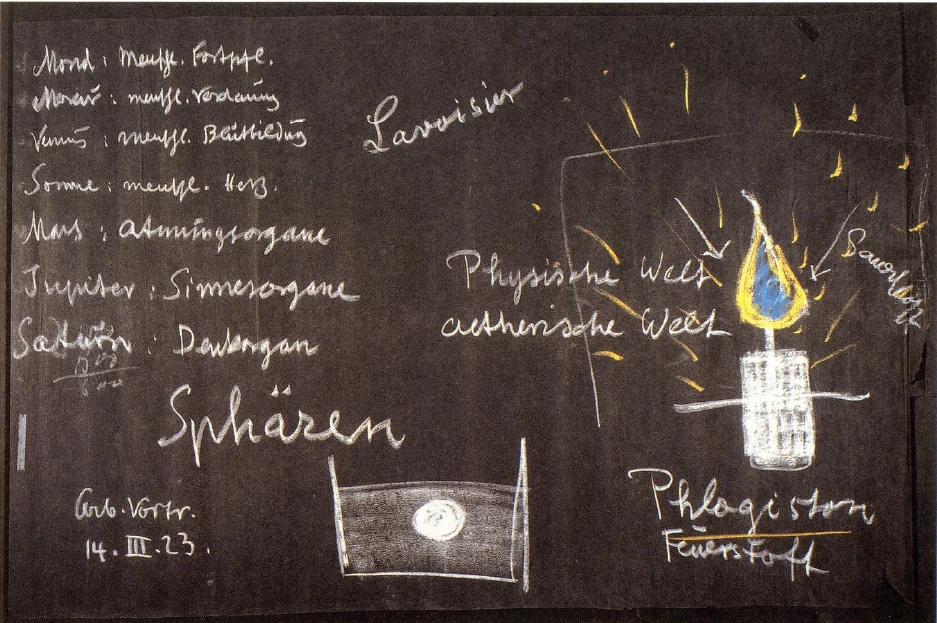 Mond : menschl. Fortpfl.
Merkur : menschl. Verdauung
Venus : menschl. Blutbildung
Sonne : menschl. Herz.
Mars : Atmungsorgane
Jupiter : Sinnesorgane
Saturn : Denkorgan
Sphären
Arb. Vortr.
14. III. 23.
Lavoisier
Physische Welt
aetherische Welt
Sauerstoff
Phlogiston
Feuerstoff